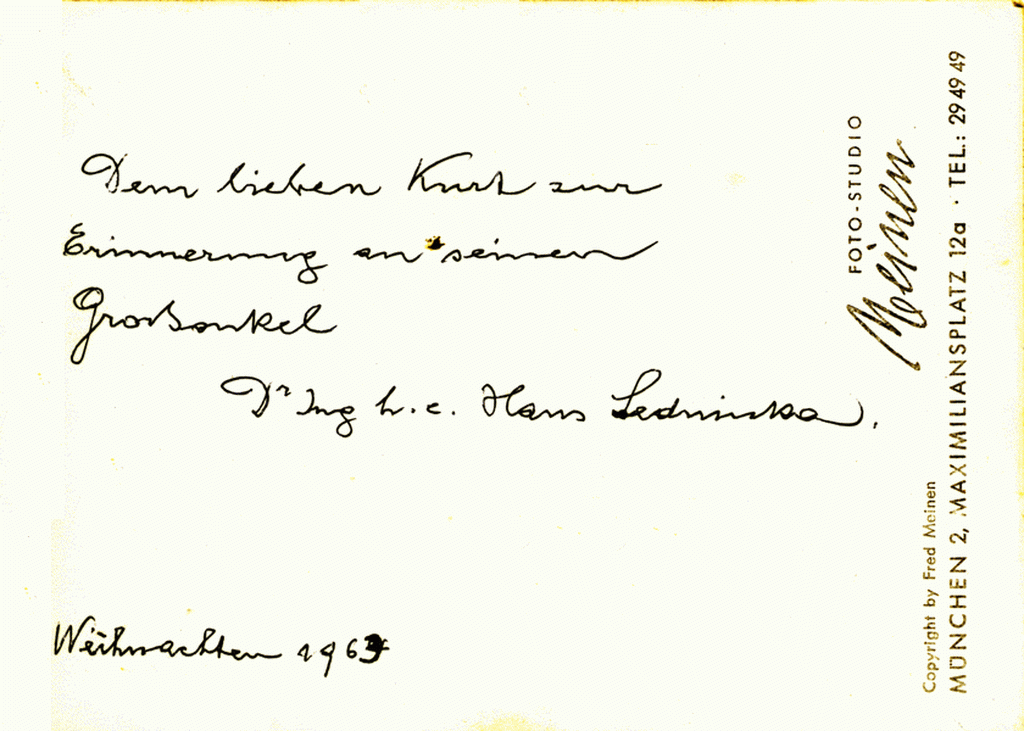 Dem lieben Kurt zur
Erinnerung an seinen
Großonkel
Dr Ing h. c. Hans Ledwinka.
Weihnachten
FOTO-STUDIO
Meinen
Copyright by Fred Meinen
MÜNCHEN 2, MAXIMILIANSPLATZ 12a · TEL.: 29 49 49